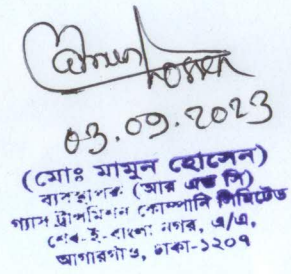 Mamun Hossen
03.09.2023
(মোঃ মামুন হোসেন)
ব্যবস্থাপক (আর এন্ড পি)
গ্যাস ট্রান্সমিশন কোম্পানি লিমিটেড
শের-ই-বাংলা নগর, এ/এ,
আগারগাঁও, ঢাকা-১২০৭